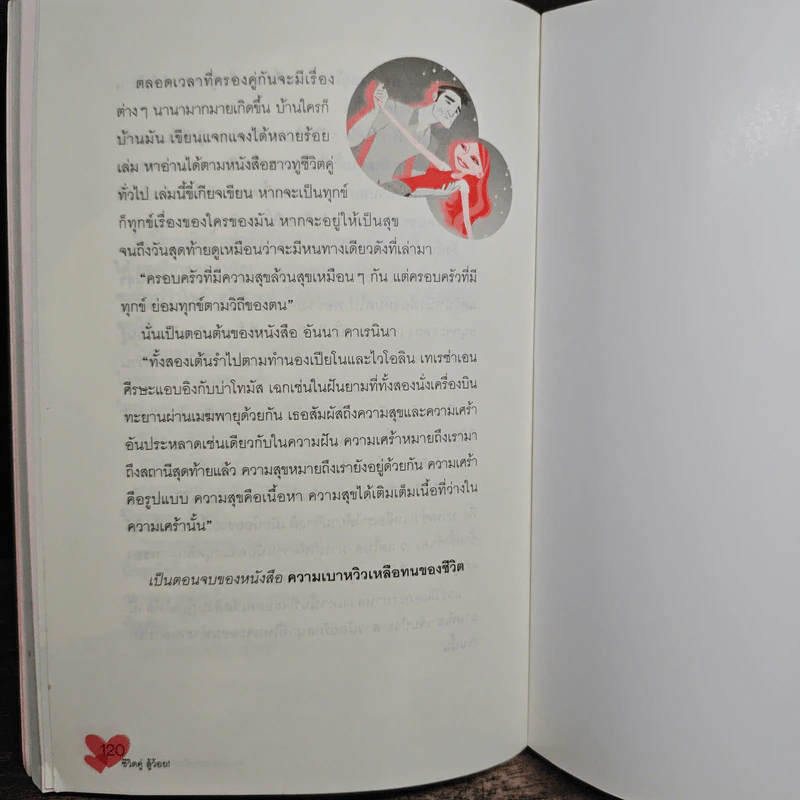 ตลอดเวลาที่ครองคู่กันจะมีเรื่อง
ต่างๆ นานามากมายเกิดขึ้น บ้านใครก็
บ้านมัน เขียนแจกแจงได้หลายร้อย
เล่ม หาอ่านได้ตามหนังสือฮาวทูชีวิตคู่
ทั่วไป เล่มนี้ขี้เกียจเขียน หากจะเป็นทุกข์
ก็ทุกข์เรื่องของใครของมัน หากจะอยู่ให้เป็นสุข
จนถึงวันสุดท้ายดูเหมือนว่าจะมีหนทางเดียวดังที่เล่ามา
“ครอบครัวที่มีความสุขล้วนสุขเหมือนๆ กัน แต่ครอบครัวที่มี
ทุกข์ ย่อมทุกข์ตามวิถีของตน”
นั่นเป็นตอนต้นของหนังสือ อันนา คาเรนินา
“ทั้งสองเต้นรำไปตามทำนองเปียโนและไวโอลิน เทเรซ่าเอน
ศีรษะแอบอิงกับบ่าโทมัส เฉกเช่นในฝันยามที่ทั้งสองนั่งเครื่องบิน
ทะยานผ่านเมฆพายุด้วยกัน เธอสัมผัสถึงความสุขและความเศร้า
อันประหลาดเช่นเดียวกับในความฝัน ความเศร้าหมายถึงเรามา
ถึงสถานีสุดท้ายแล้ว ความสุขหมายถึงเรายังอยู่ด้วยกัน ความเศร้า
คือรูปแบบ ความสุขคือเนื้อหา ความสุขได้เติมเต็มเนื้อที่ว่างใน
ความเศร้านั้น”
เป็นตอนจบของหนังสือ ความเบาหวิวเหลือทนของชีวิต
120
ชีวิตคู่ สู้ว้อย!